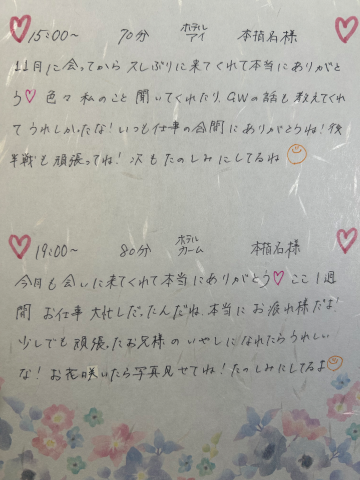 15:00~ 70分 ホテルアイ 本指名様
11月に会ってから久しぶりに来てくれて本当にありがと
う 色々私のこと聞いてくれたり、GWの話も教えてくれ
てうれしかったな!いつも仕事の合間にありがとうね!後
半戦も頑張ってね!次もたのしみにしてるね
19:00~ 80分 ホテルカーム 本指名様
今月も会いに来てくれて本当にありがとう ここ1週
間 お仕事 大忙しだったんだね、本当にお疲れ様だよ!
少しでも頑張ったお兄様のいやしになれたらうれしい
な!お花咲いたら写真見せてね!たのしみにしてるよ